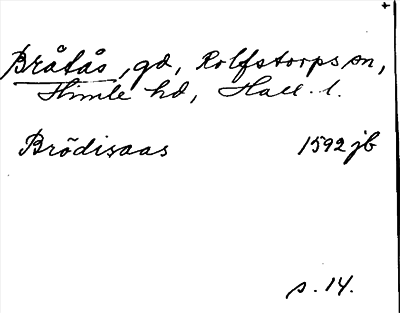 Bråtås, gd, Rolfstorps sn,
Himle hd, Hall. l.
Brödisaas 1592 jb
s. 14.